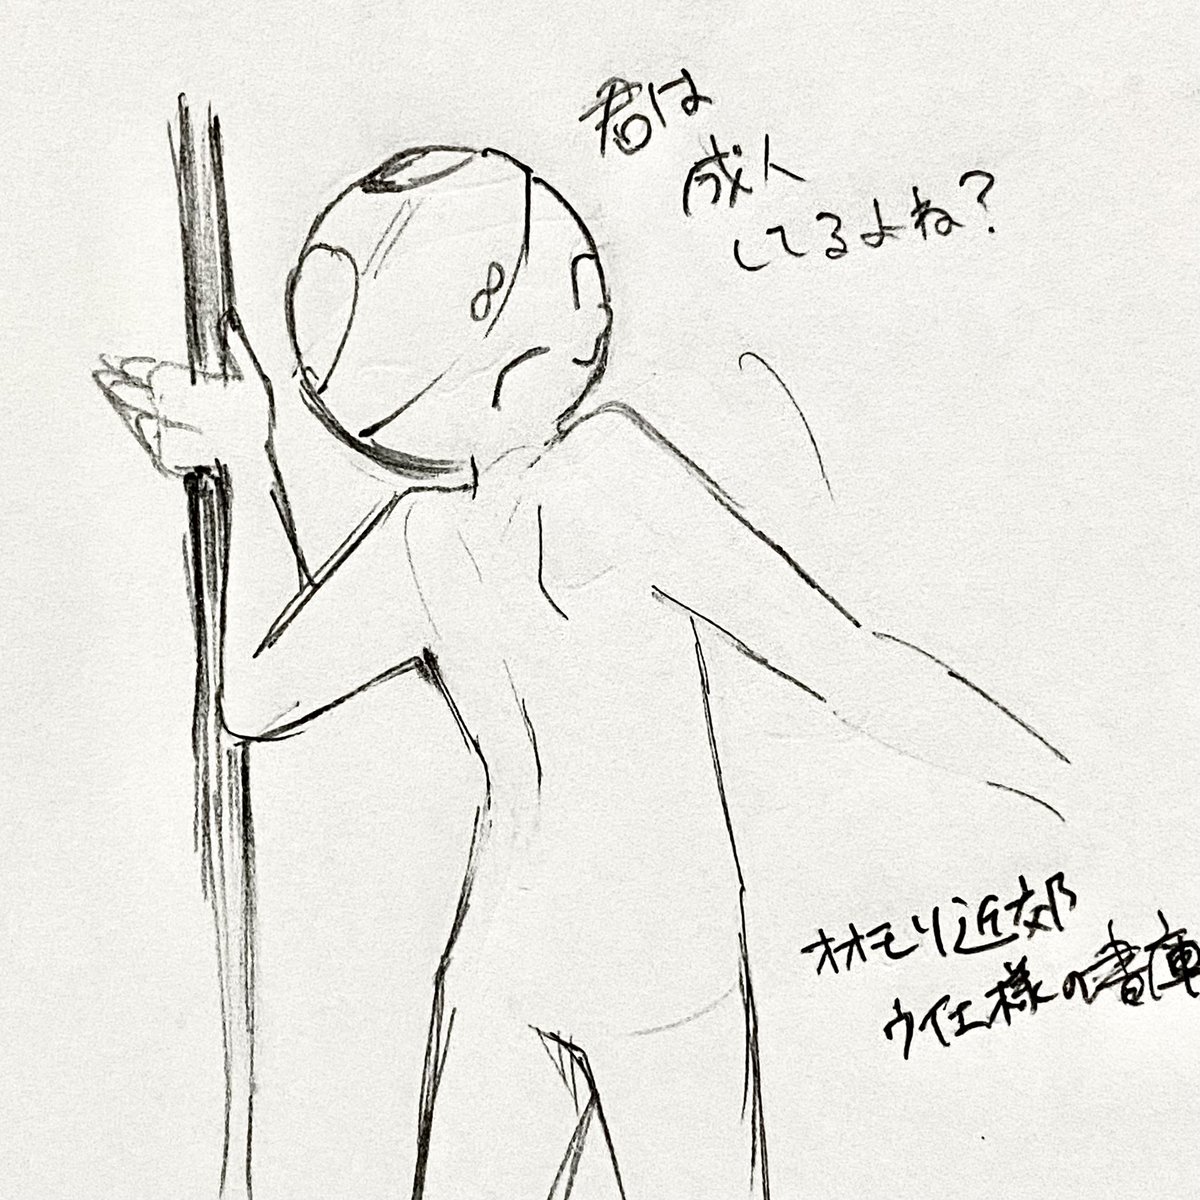 君は
成人
してるよね?
8
オオモリ近郊
ウイエ様の書庫